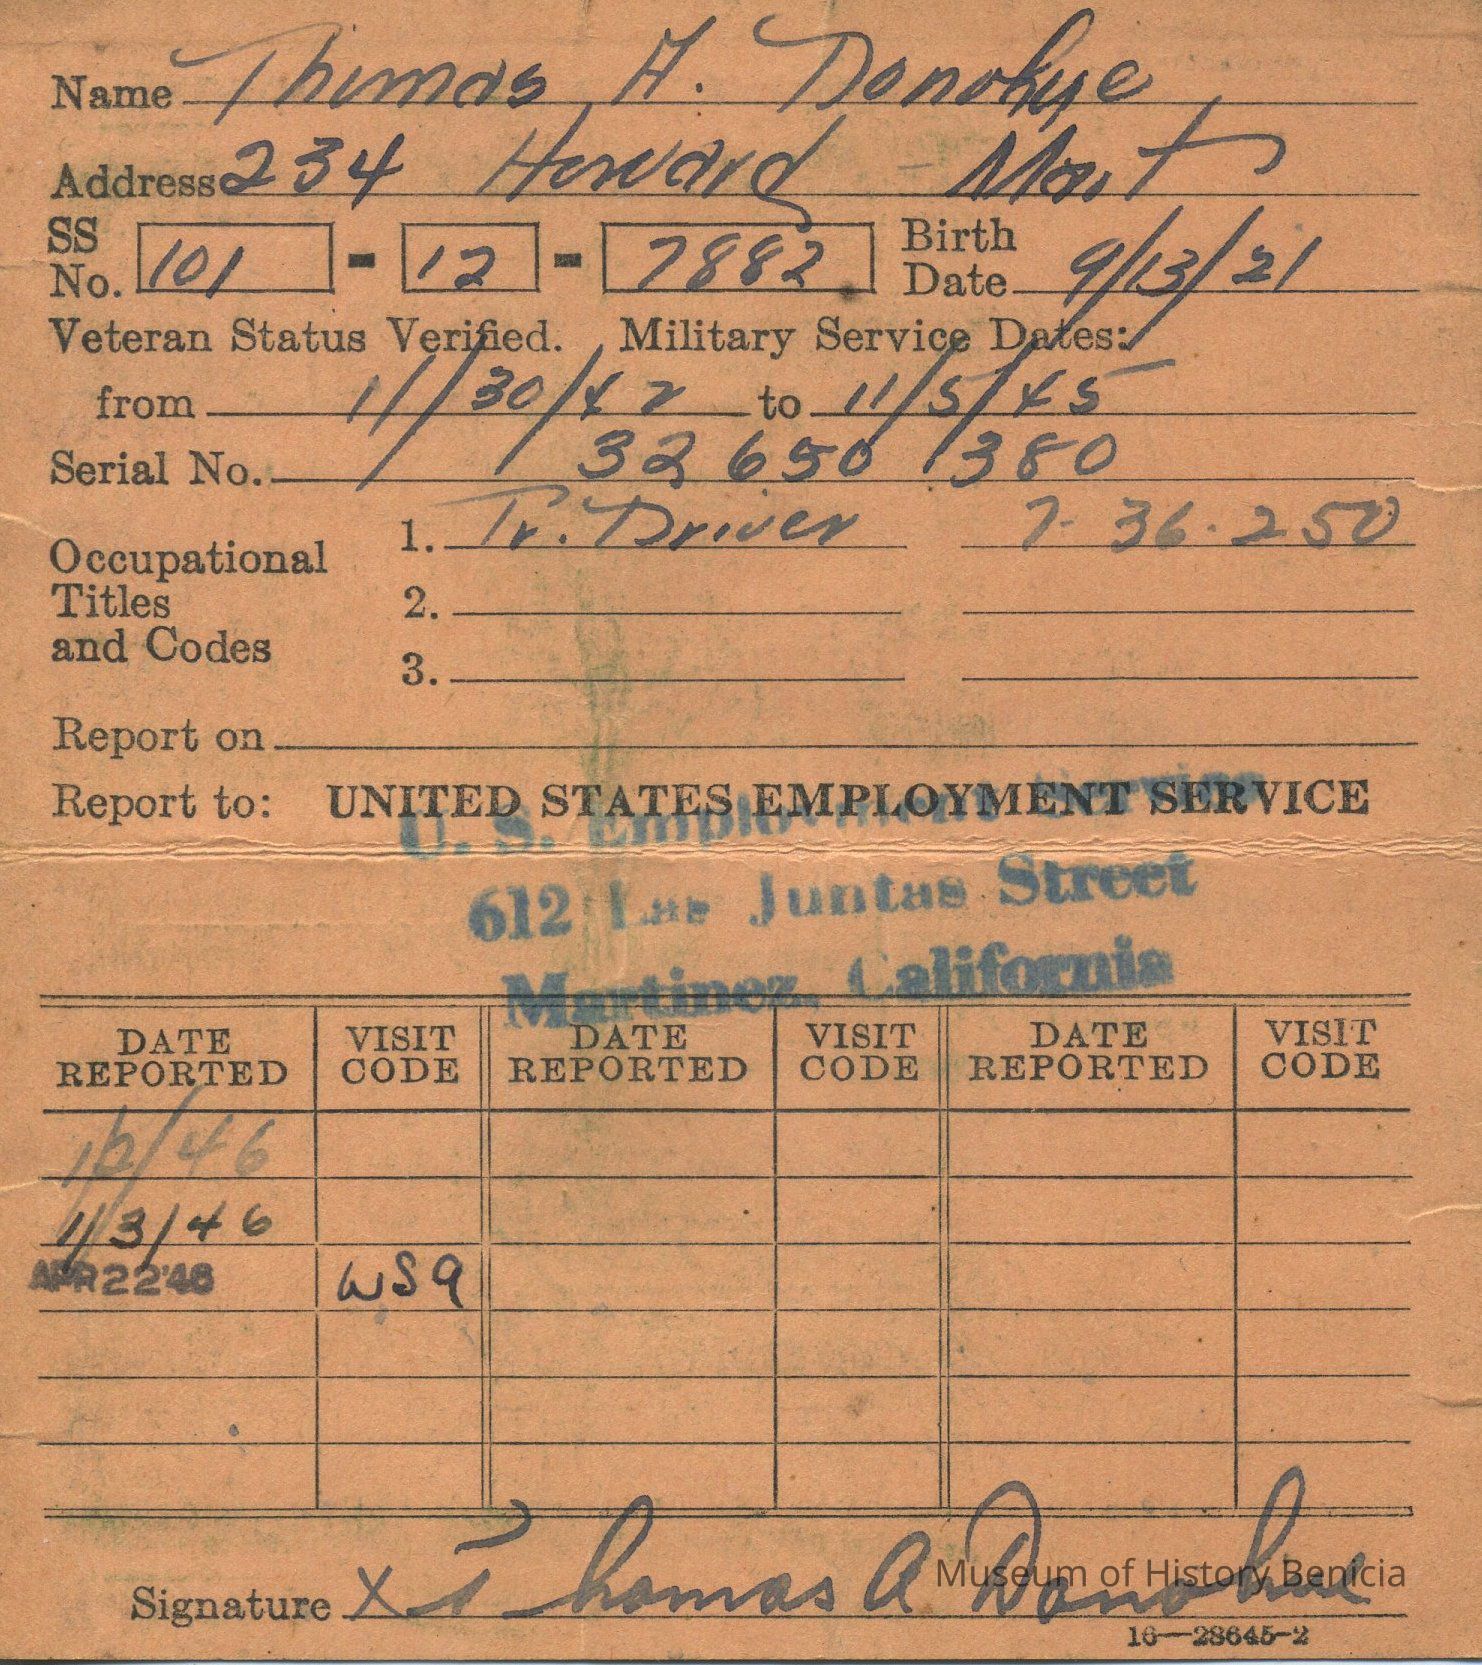 Name Thomas A. Donohue
Address 234 Howard - Mart
SS No. 101 - 12 - 7882 Birth Date 9/13/21
Veteran Status Verified. Military Service Dates:
from 11/30/42 to 11/5/45
Serial No. 32 650 380
Occupational Titles and Codes
1. Tr. Driver 7-36.250
2.
3.
Report on
Report to: UNITED STATES EMPLOYMENT SERVICE
U. S. Employment Service
612 Las Juntas Street
Martinez, California
DATE REPORTED VISIT CODE DATE REPORTED VISIT CODE DATE REPORTED VISIT CODE
1/3/46
APR 22 '46 WS9
Signature X Thomas A Donohue
Museum of History Benicia
16—28645-2